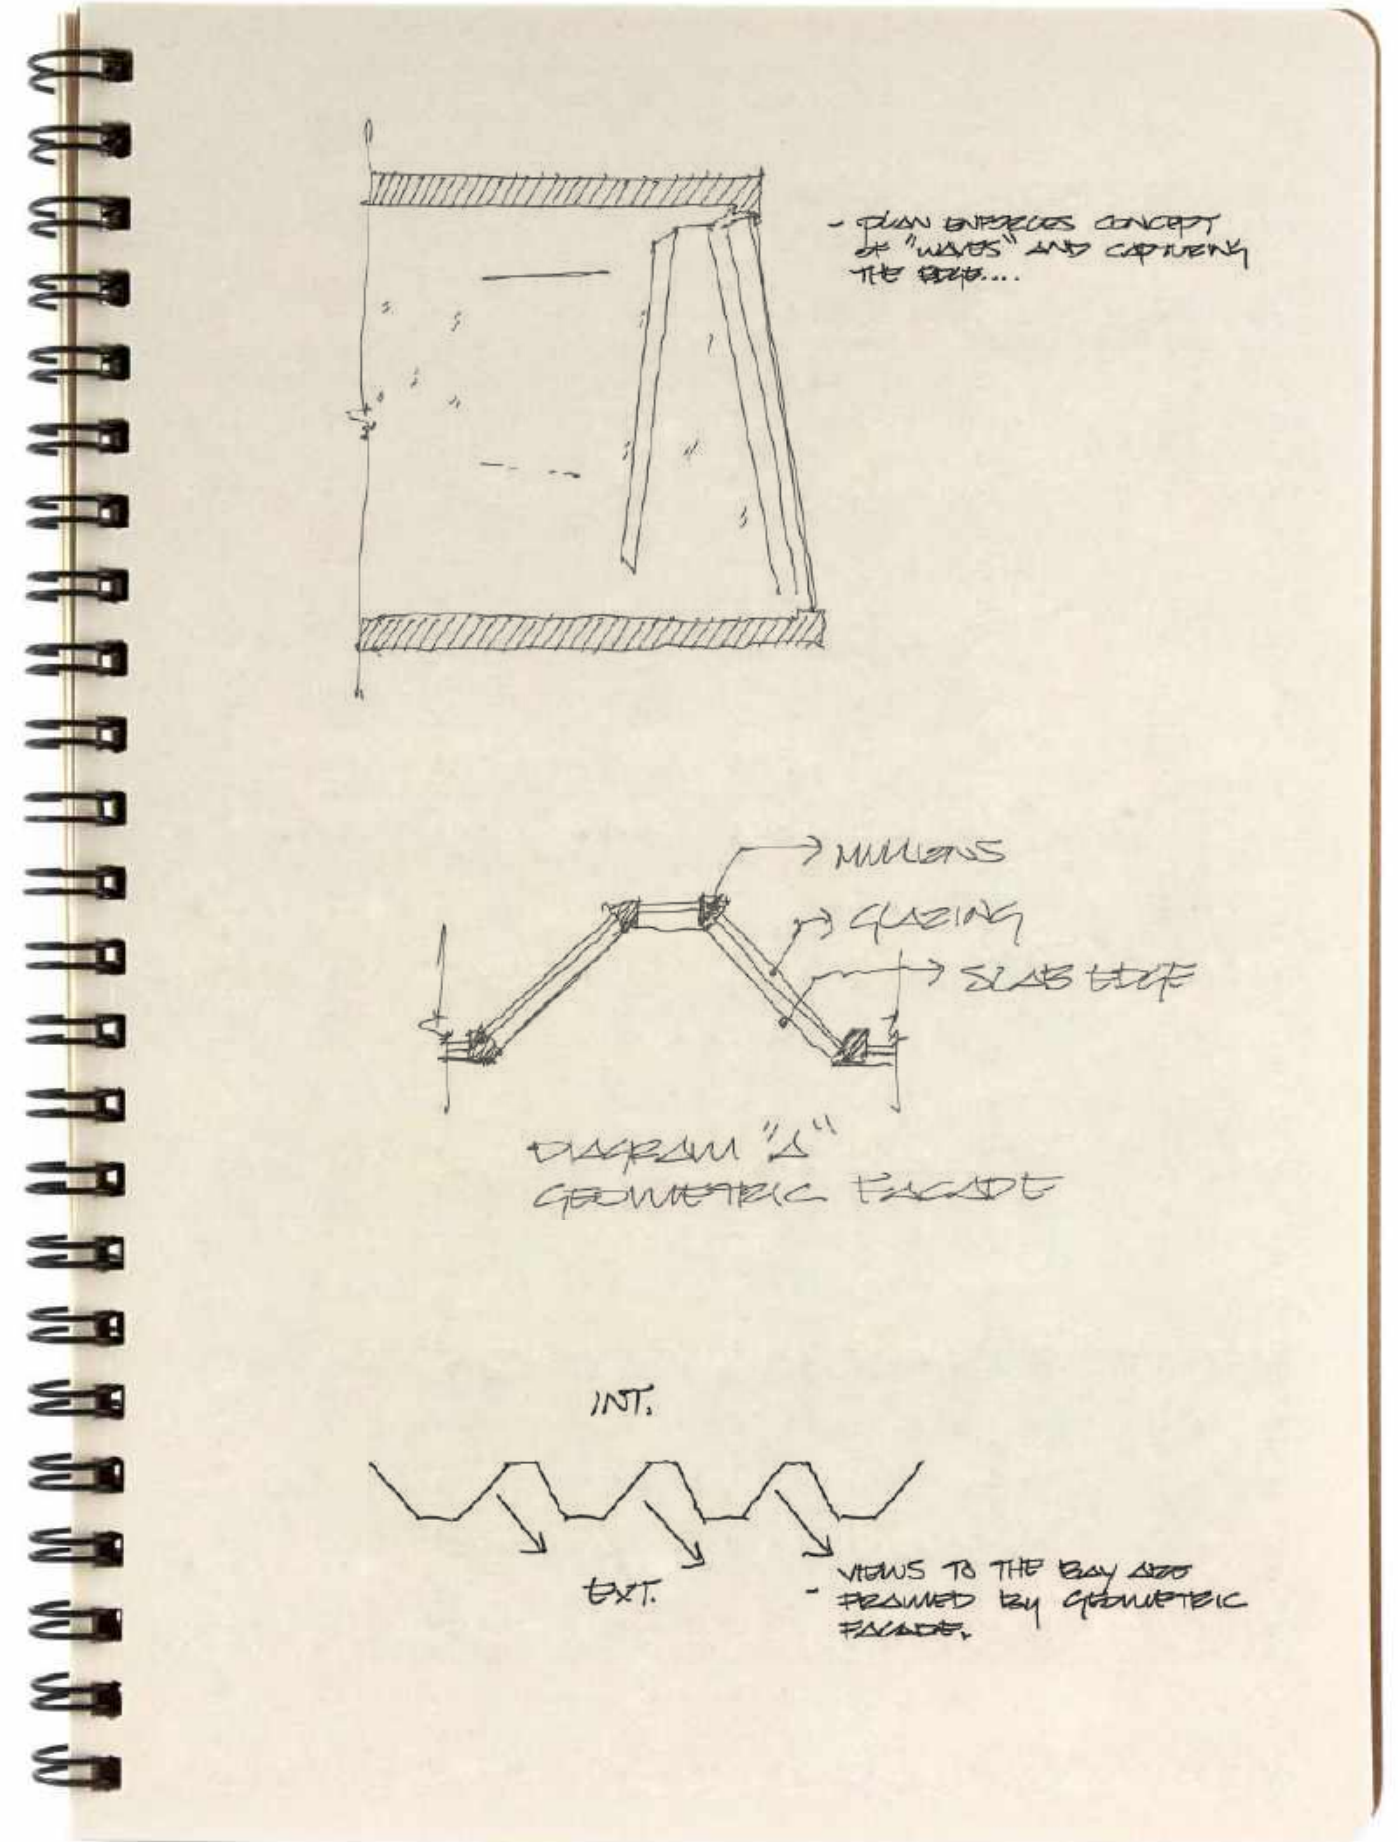 - PLAN ENFORCES CONCEPT
OF "WAVES" AND CAPTURING
THE EDGE....
MULLIONS
GLAZING
SLAB EDGE
DIAGRAM "A"
GEOMETRIC FACADE
INT.
EXT.
- VIEWS TO THE BAY ARE
FRAMED BY GEOMETRIC
FACADE.